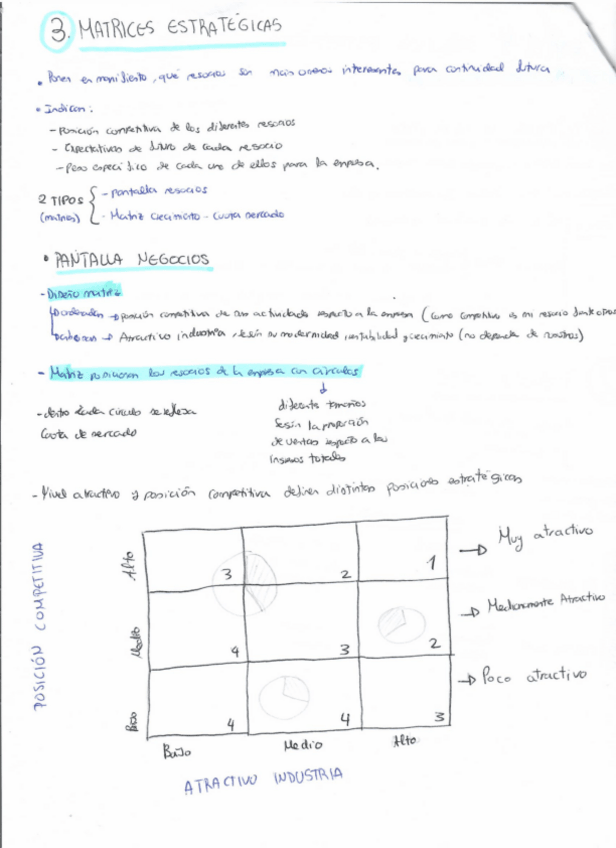 3. MATRICES ESTRATÉGICAS
• Ponen en manifiesto, qué negocios son más o menos interesantes para continuidad futura
• Indican:
- Posición competitiva de los diferentes negocios
- Expectativas de futuro de cada negocio
- Peso específico de cada uno de ellos para la empresa.
2 TIPOS
(matrices)
- pantalla negocios
- Matriz crecimiento - cuota mercado
• PANTALLA NEGOCIOS
- Diseño matriz
posición competitiva de actividades respecto a la empresa (como competitivo es mi negocio
Atractivo industria, según su modernidad, rentabilidad y crecimiento (no depende de nosotros)
- Matriz posicionan los negocios de la empresa con círculos
- dentro cada círculo se refleja
cuota de mercado
diferente tamaños
según la proporción
de ventas respecto a los
ingresos totales
- Nivel atractivo y posición competitiva definen distintas posiciones estratégicas
POSICIÓN COMPETITIVA
Alto
3
2
1
Muy atractivo
Medio
4
3
2
Medianamente Atractivo
Bajo
4
4
3
Poco atractivo
Bajo
Medio
Alto
ATRACTIVO INDUSTRIA